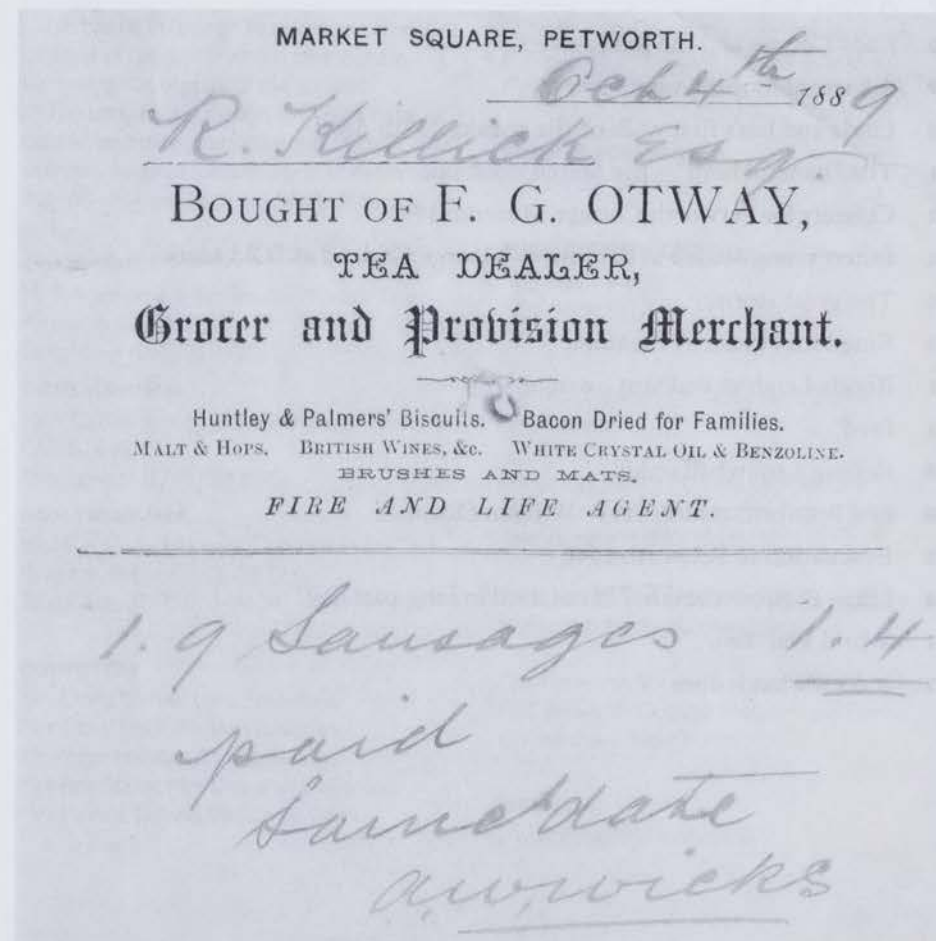 MARKET SQUARE, PETWORTH.
Oct 4th 1889
R. Killick Esq
BOUGHT OF E. G. OTWAY,
TEA DEALER,
Grocer and Provision Merchant.
Huntley & Palmers' Biscuits. Bacon Dried for Families.
MALT & HOPS. BRITISH WINES, &c. WHITE CRYSTAL OIL & BENZOLINE.
BRUSHES AND MATS.
FIRE AND LIFE AGENT.
1.9 Sausages 1.4
paid
Same date
a.w.wicks